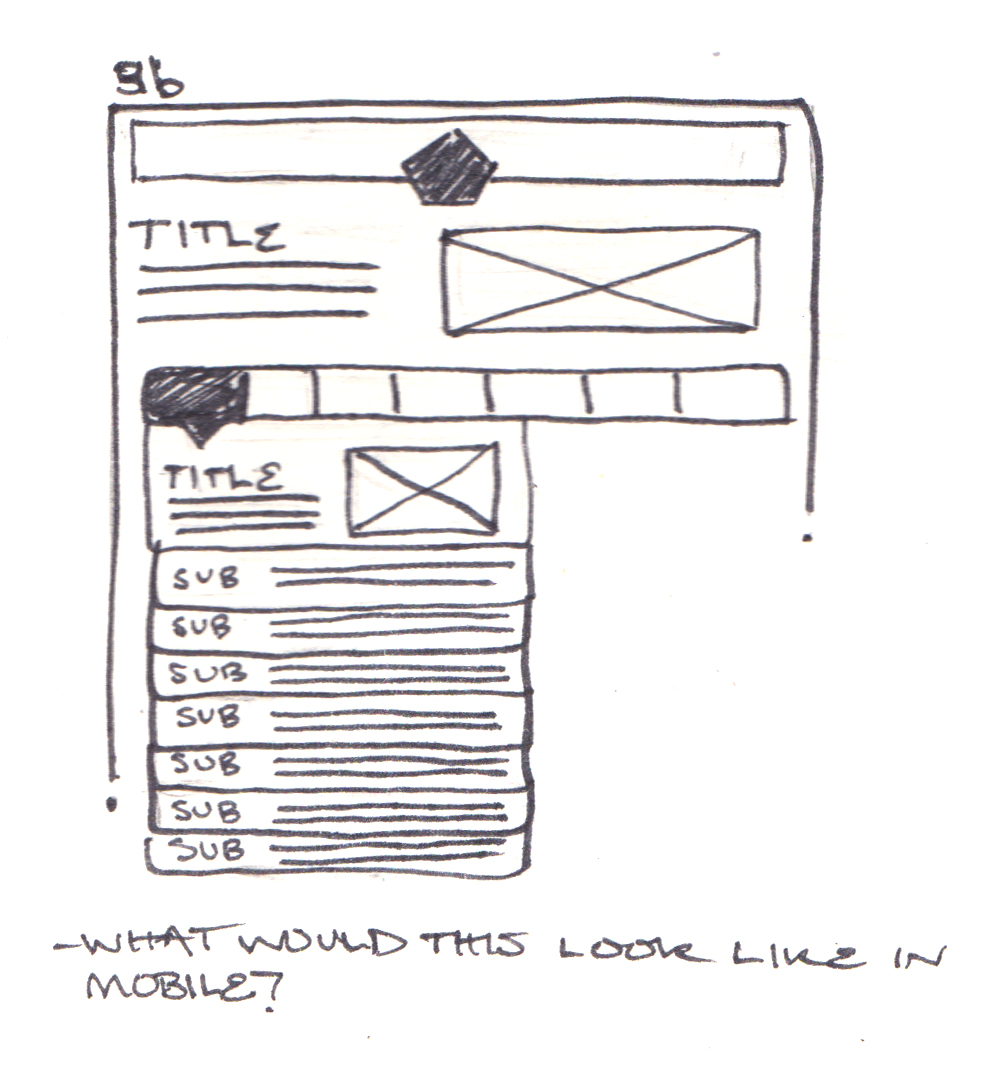 9b
TITLE
TITLE
SUB
SUB
SUB
SUB
SUB
SUB
SUB
-WHAT WOULD THIS LOOK LIKE IN
MOBILE?